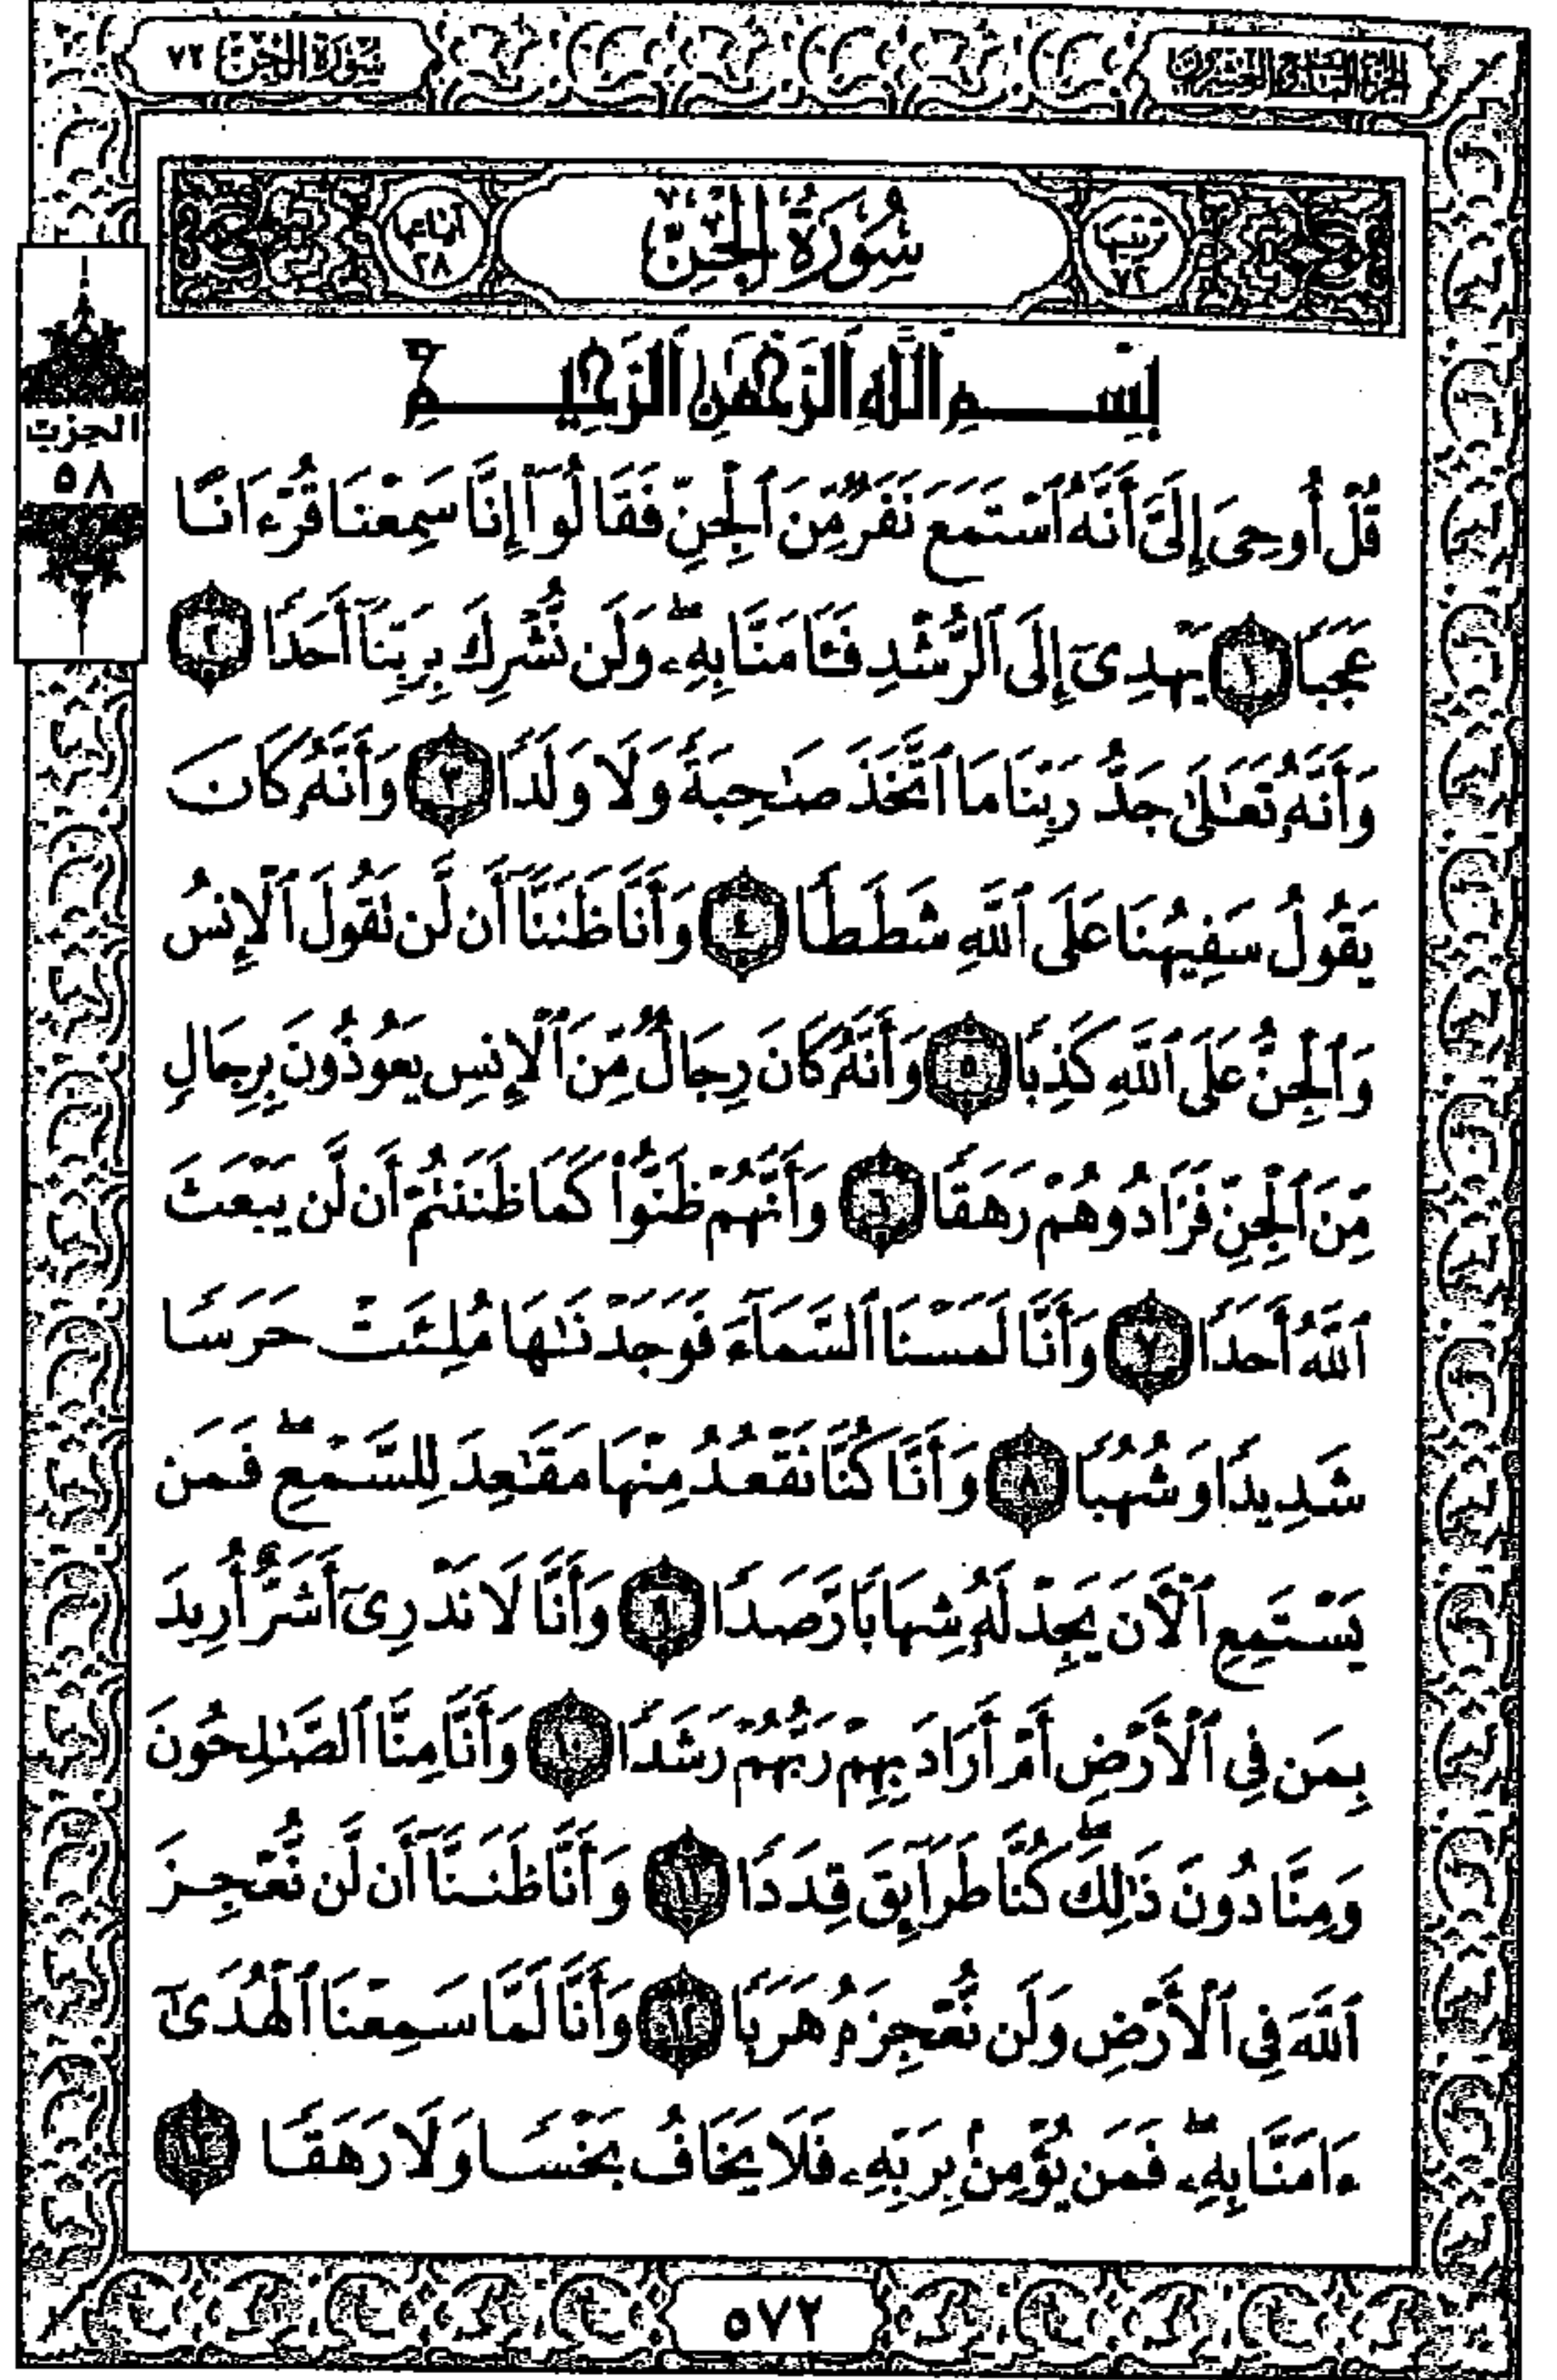 الجزء التاسع والعشرون
سورة الجن ٧٢
ترتيبها ٧٢
سُورَةُ الجِنّ
آياتها ٢٨
الحزب ٥٨
بِسْمِ ٱللَّهِ ٱلرَّحْمَٰنِ ٱلرَّحِيمِ
قُلْ أُوحِىَ إِلَىَّ أَنَّهُ ٱسْتَمَعَ نَفَرٌ مِّنَ ٱلْجِنِّ فَقَالُوٓا۟ إِنَّا سَمِعْنَا قُرْءَانًا
عَجَبًا ١ يَهْدِىٓ إِلَى ٱلرُّشْدِ فَـَٔامَنَّا بِهِۦ ۖ وَلَن نُّشْرِكَ بِرَبِّنَآ أَحَدًا ٢
وَأَنَّهُۥ تَعَٰلَىٰ جَدُّ رَبِّنَا مَا ٱتَّخَذَ صَٰحِبَةً وَلَا وَلَدًا ٣ وَأَنَّهُۥ كَانَ
يَقُولُ سَفِيهُنَا عَلَى ٱللَّهِ شَطَطًا ٤ وَأَنَّا ظَنَنَّآ أَن لَّن تَقُولَ ٱلْإِنسُ
وَٱلْجِنُّ عَلَى ٱللَّهِ كَذِبًا ٥ وَأَنَّهُۥ كَانَ رِجَالٌ مِّنَ ٱلْإِنسِ يَعُوذُونَ بِرِجَالٍ
مِّنَ ٱلْجِنِّ فَزَادُوهُمْ رَهَقًا ٦ وَأَنَّهُمْ ظَنُّوا۟ كَمَا ظَنَنتُمْ أَن لَّن يَبْعَثَ
ٱللَّهُ أَحَدًا ٧ وَأَنَّا لَمَسْنَا ٱلسَّمَآءَ فَوَجَدْنَٰهَا مُلِئَتْ حَرَسًا
شَدِيدًا وَشُهُبًا ٨ وَأَنَّا كُنَّا نَقْعُدُ مِنْهَا مَقَٰعِدَ لِلسَّمْعِ ۖ فَمَن
يَسْتَمِعِ ٱلْـَٔانَ يَجِدْ لَهُۥ شِهَابًا رَّصَدًا ٩ وَأَنَّا لَا نَدْرِىٓ أَشَرٌّ أُرِيدَ
بِمَن فِى ٱلْأَرْضِ أَمْ أَرَادَ بِهِمْ رَبُّهُمْ رَشَدًا ١٠ وَأَنَّا مِنَّا ٱلصَّٰلِحُونَ
وَمِنَّا دُونَ ذَٰلِكَ ۖ كُنَّا طَرَآئِقَ قِدَدًا ١١ وَأَنَّا ظَنَنَّآ أَن لَّن نُّعْجِزَ
ٱللَّهَ فِى ٱلْأَرْضِ وَلَن نُّعْجِزَهُۥ هَرَبًا ١٢ وَأَنَّا لَمَّا سَمِعْنَا ٱلْهُدَىٰٓ
ءَامَنَّا بِهِۦ ۖ فَمَن يُؤْمِنۢ بِرَبِّهِۦ فَلَا يَخَافُ بَخْسًا وَلَا رَهَقًا ١٣
٥٧٢